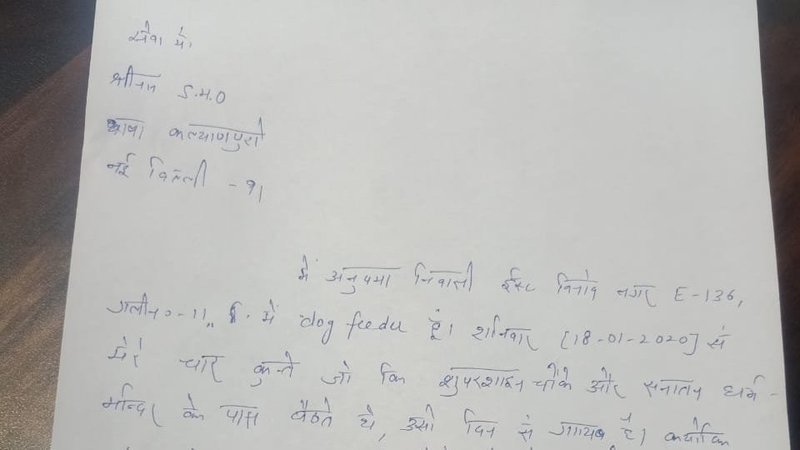 सेवा में,
श्रीमान S.H.O
थाना कल्याणपुरी
नई दिल्ली - 91
मैं अनुपमा निवासी ईस्ट विनोद नगर E-136,
गली न०-11,, में dog feeder हूं। शनिवार [18-01-2020] से
मेरे चार कुत्ते जो कि चौक और सनातन धर्म -
मन्दिर के पास बैठते थे, उसी दिन से गायब है। क्योकि